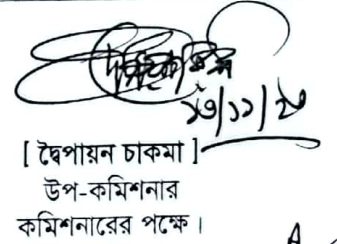 [ দ্বৈপায়ন চাকমা ]
উপ-কমিশনার
কমিশনারের পক্ষে।